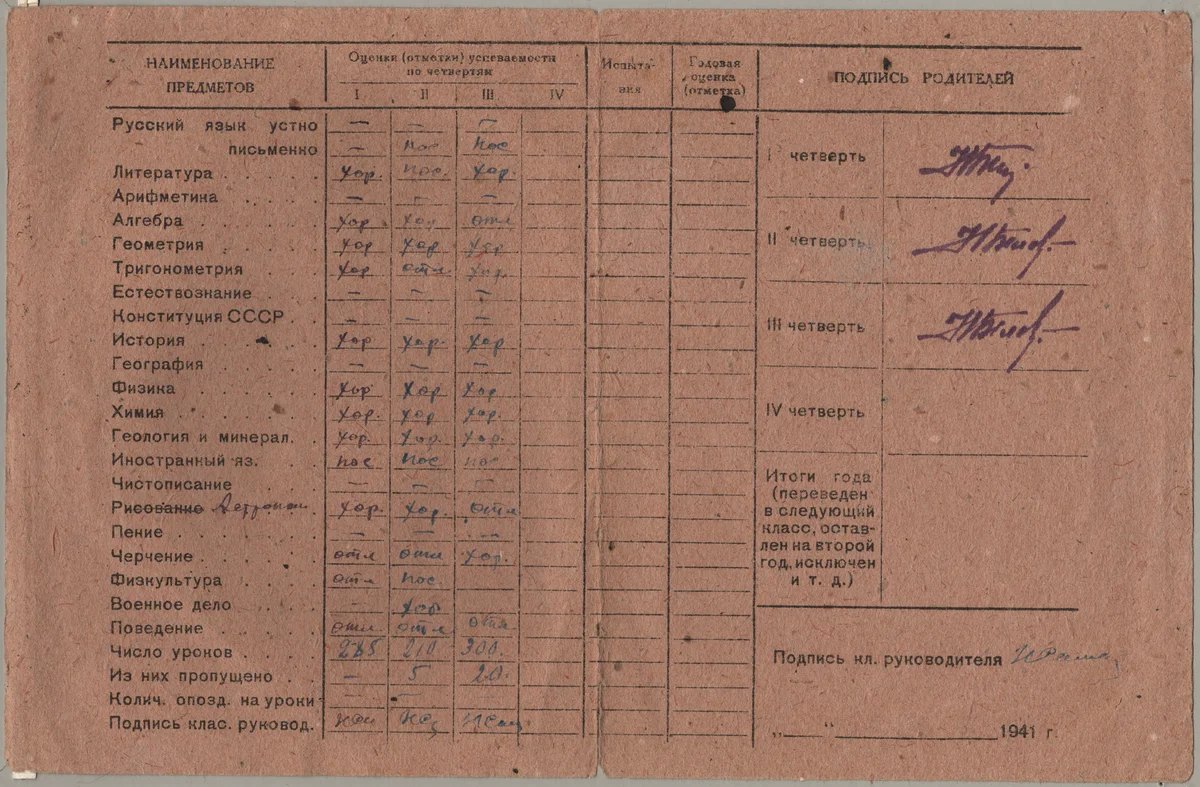 НАИМЕНОВАНИЕ ПРЕДМЕТОВ
Оценки (отметки) успеваемости по четвертям
I II III IV
Испыта- ния
Годовая оценка (отметка)
ПОДПИСЬ РОДИТЕЛЕЙ
Русский язык устно — — —
письменно — пос пос
Литература . . . . . хор. пос. хор.
Арифметика . . . . — — —
Алгебра . . . . . . хор хор отл
Геометрия . . . . . хор хор хор
Тригонометрия . . . хор отл хор.
Естествознание . . . — — —
Конституция СССР . . — — —
История . . . . . . хор хор. хор
География . . . . . — — —
Физика . . . . . . хор хор хор
Химия . . . . . . хор. хор хор.
Геология и минерал. . хор. хор. хор.
Иностранный яз. . . . пос пос пос
Чистописание . . . — — —
Рисование хор. хор. отл
Пение . . . . . . — — —
Черчение . . . . . отл отл хор.
Физкультура . . . . отл пос.
Военное дело . . . — хор
Поведение . . . . . отл отл отл
Число уроков . . . . 210 300.
Из них пропущено . . — 5 20.
Колич. опозд. на уроки — —
Подпись клас. руковод.
I четверть
II четверть
III четверть
IV четверть
Итоги года
(переведен
в следующий
класс, остав-
лен на второй
год, исключен
и т. д.)
Подпись кл. руководителя
„ “ 1941 г.